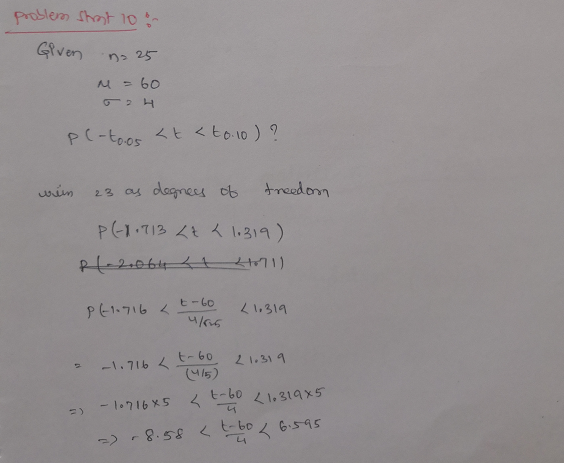 Problem Sheet 10 :-
Given n = 25
M = 60
σ = 4
P(-t0.05 < t < t0.10) ?
using 23 as degrees of freedom
P(-1.713 < t < 1.319)
P(-2.064 < t < 1.71)
P(-1.716 < t-60 / 4/√25 < 1.319
= -1.716 < t-60 / (4/5) < 1.319
=> -1.716×5 < t-60 / 4 < 1.319×5
=> -8.58 < t-60 / 4 < 6.595